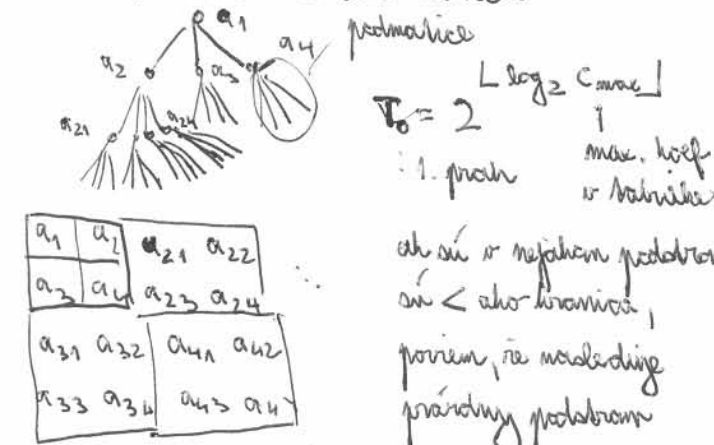 a1
a2 a3 a4 podmatice
a21 a24
T0 = 2 ⌊ log2 Cmax ⌋
1. prah
max. koef
v
a1 a2 a21 a22
a3 a4 a23 a24
...
a31 a32 a41 a42
a33 a34 a43 a4
ak sú v nejakom podstrom
sú < ako hranica,
poviem, že nasleduje
prázdny podstrom